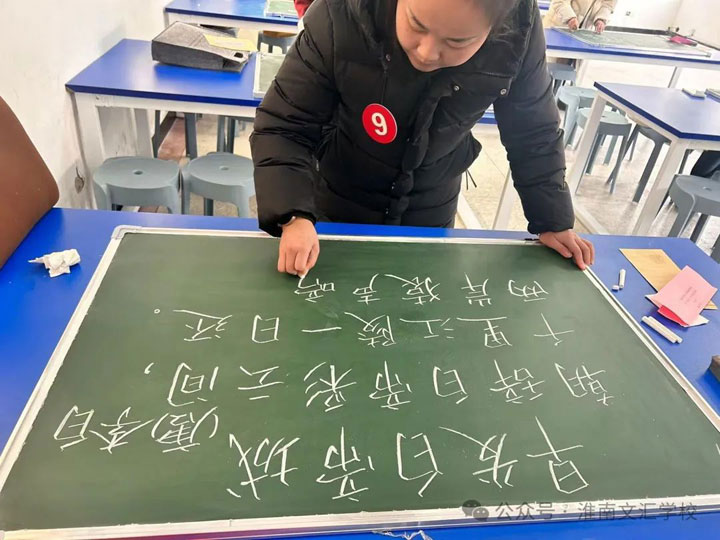 9
早发白帝城(唐)李白
朝辞白帝彩云间，
千里江陵一日还。
两岸猿声啼
公众号 · 淮南文汇学校